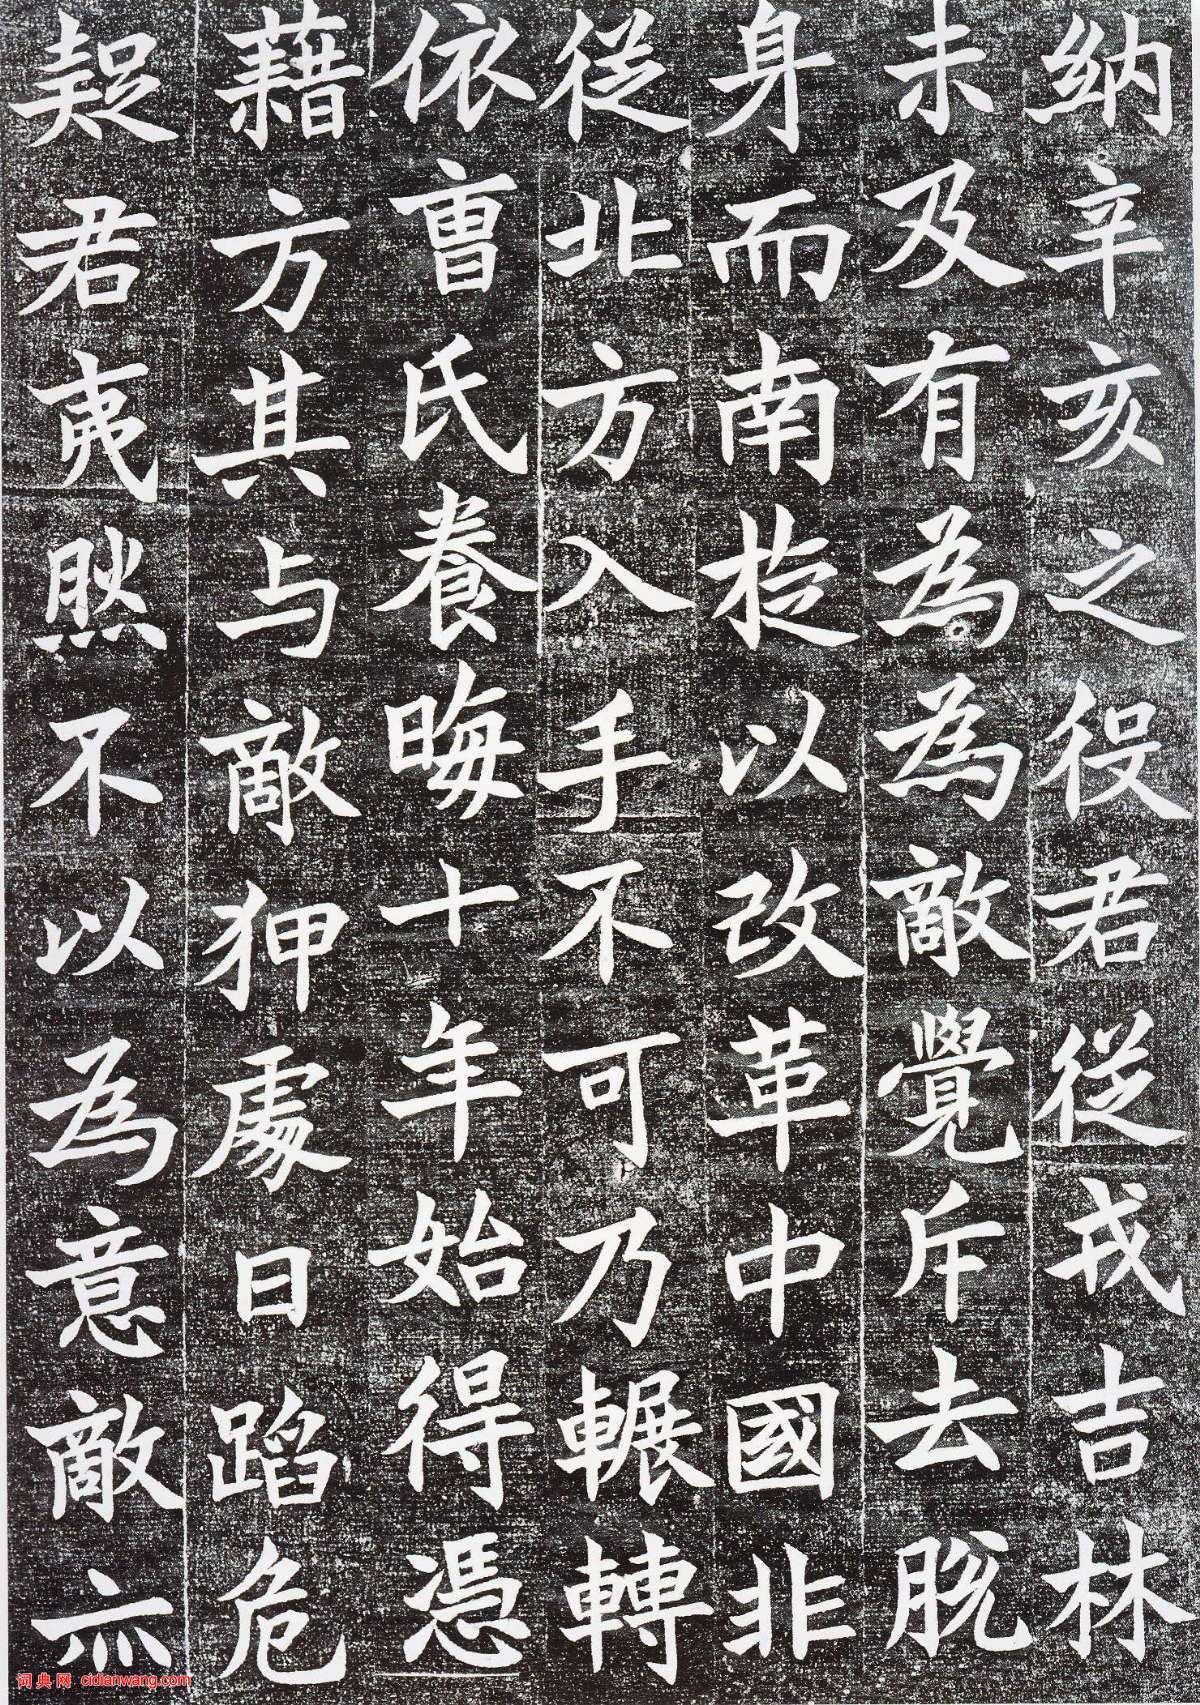 納辛亥之役君從戎吉林
未及有為為敵覺斥去脫
身而南旋以改革中國非
從北方入手不可乃輾轉
依曹氏養晦十年始得憑
藉方其与敵狎處日蹈危
疑君夷然不以為意敵亦
词典网 cidianwang.com